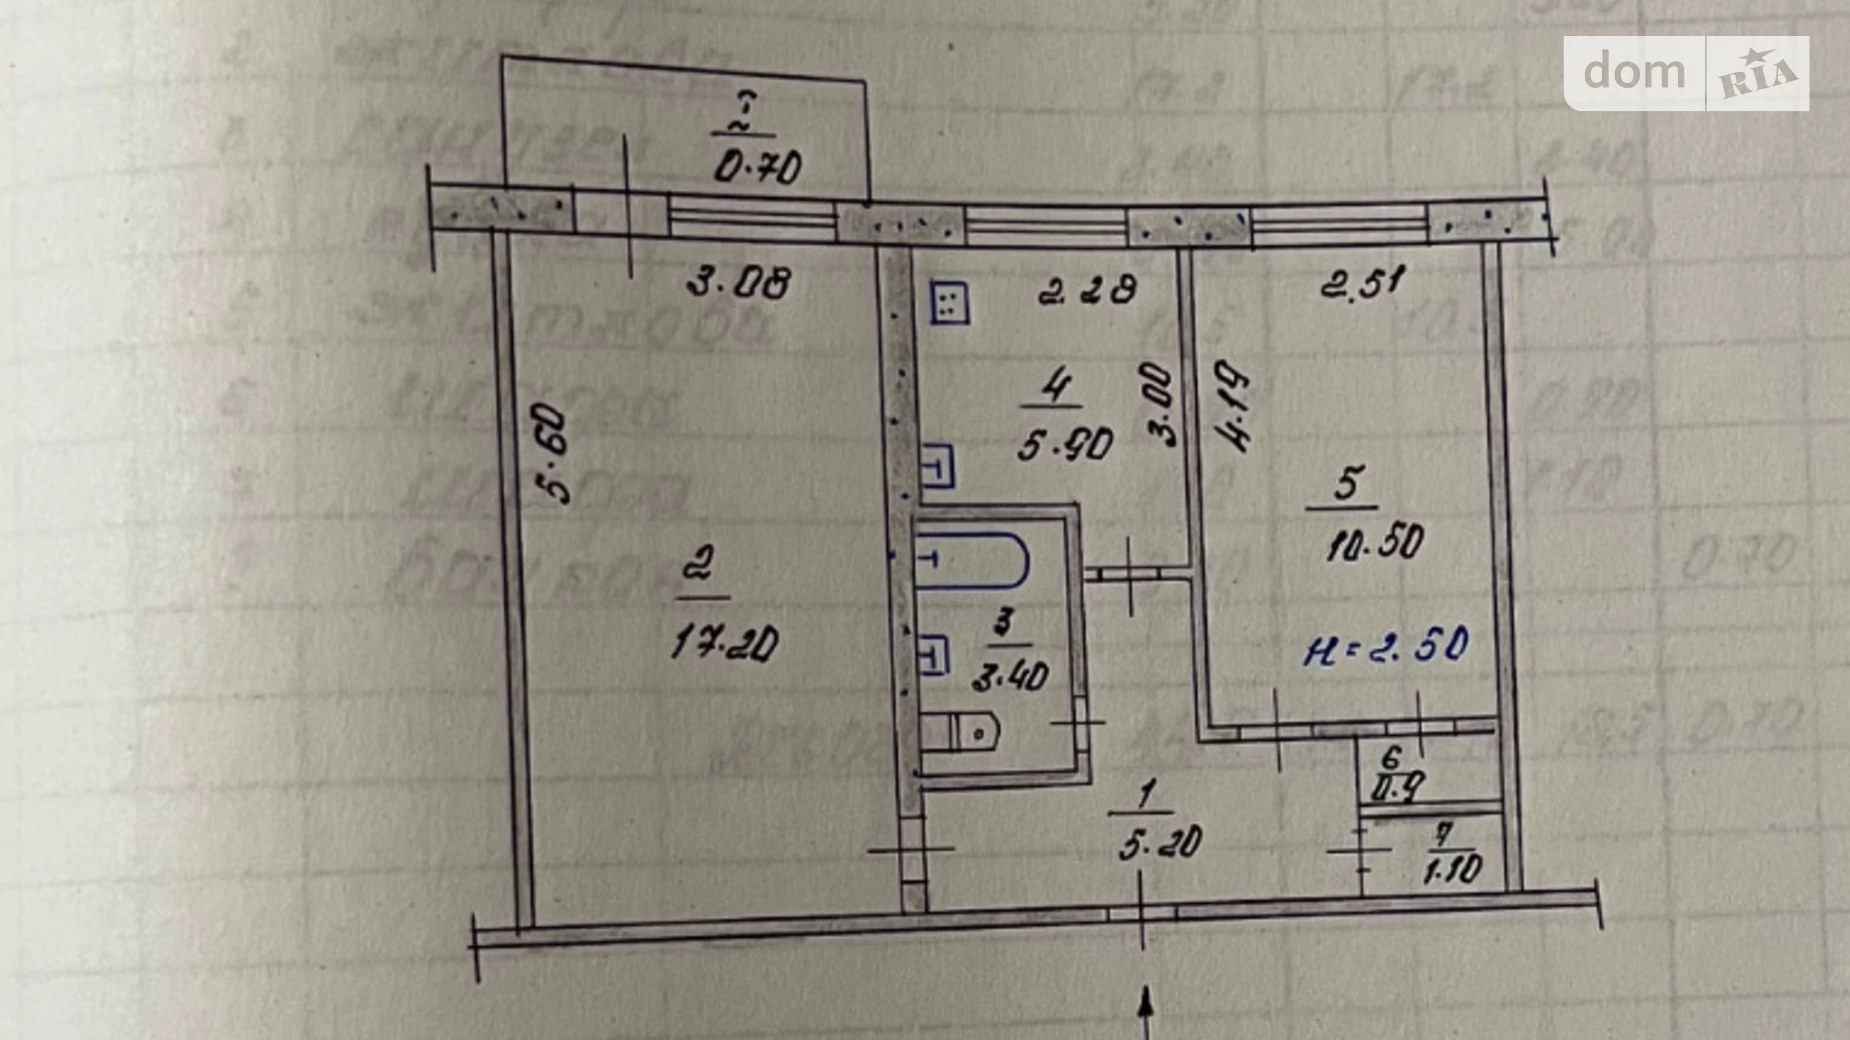 dom RIA
0.70
3.08
2.28
2.51
5.60
4
5.90
3.00
4.19
5
10.50
2
17.20
3
3.40
н=2.50
6
0.9
1
5.20
7
1.10